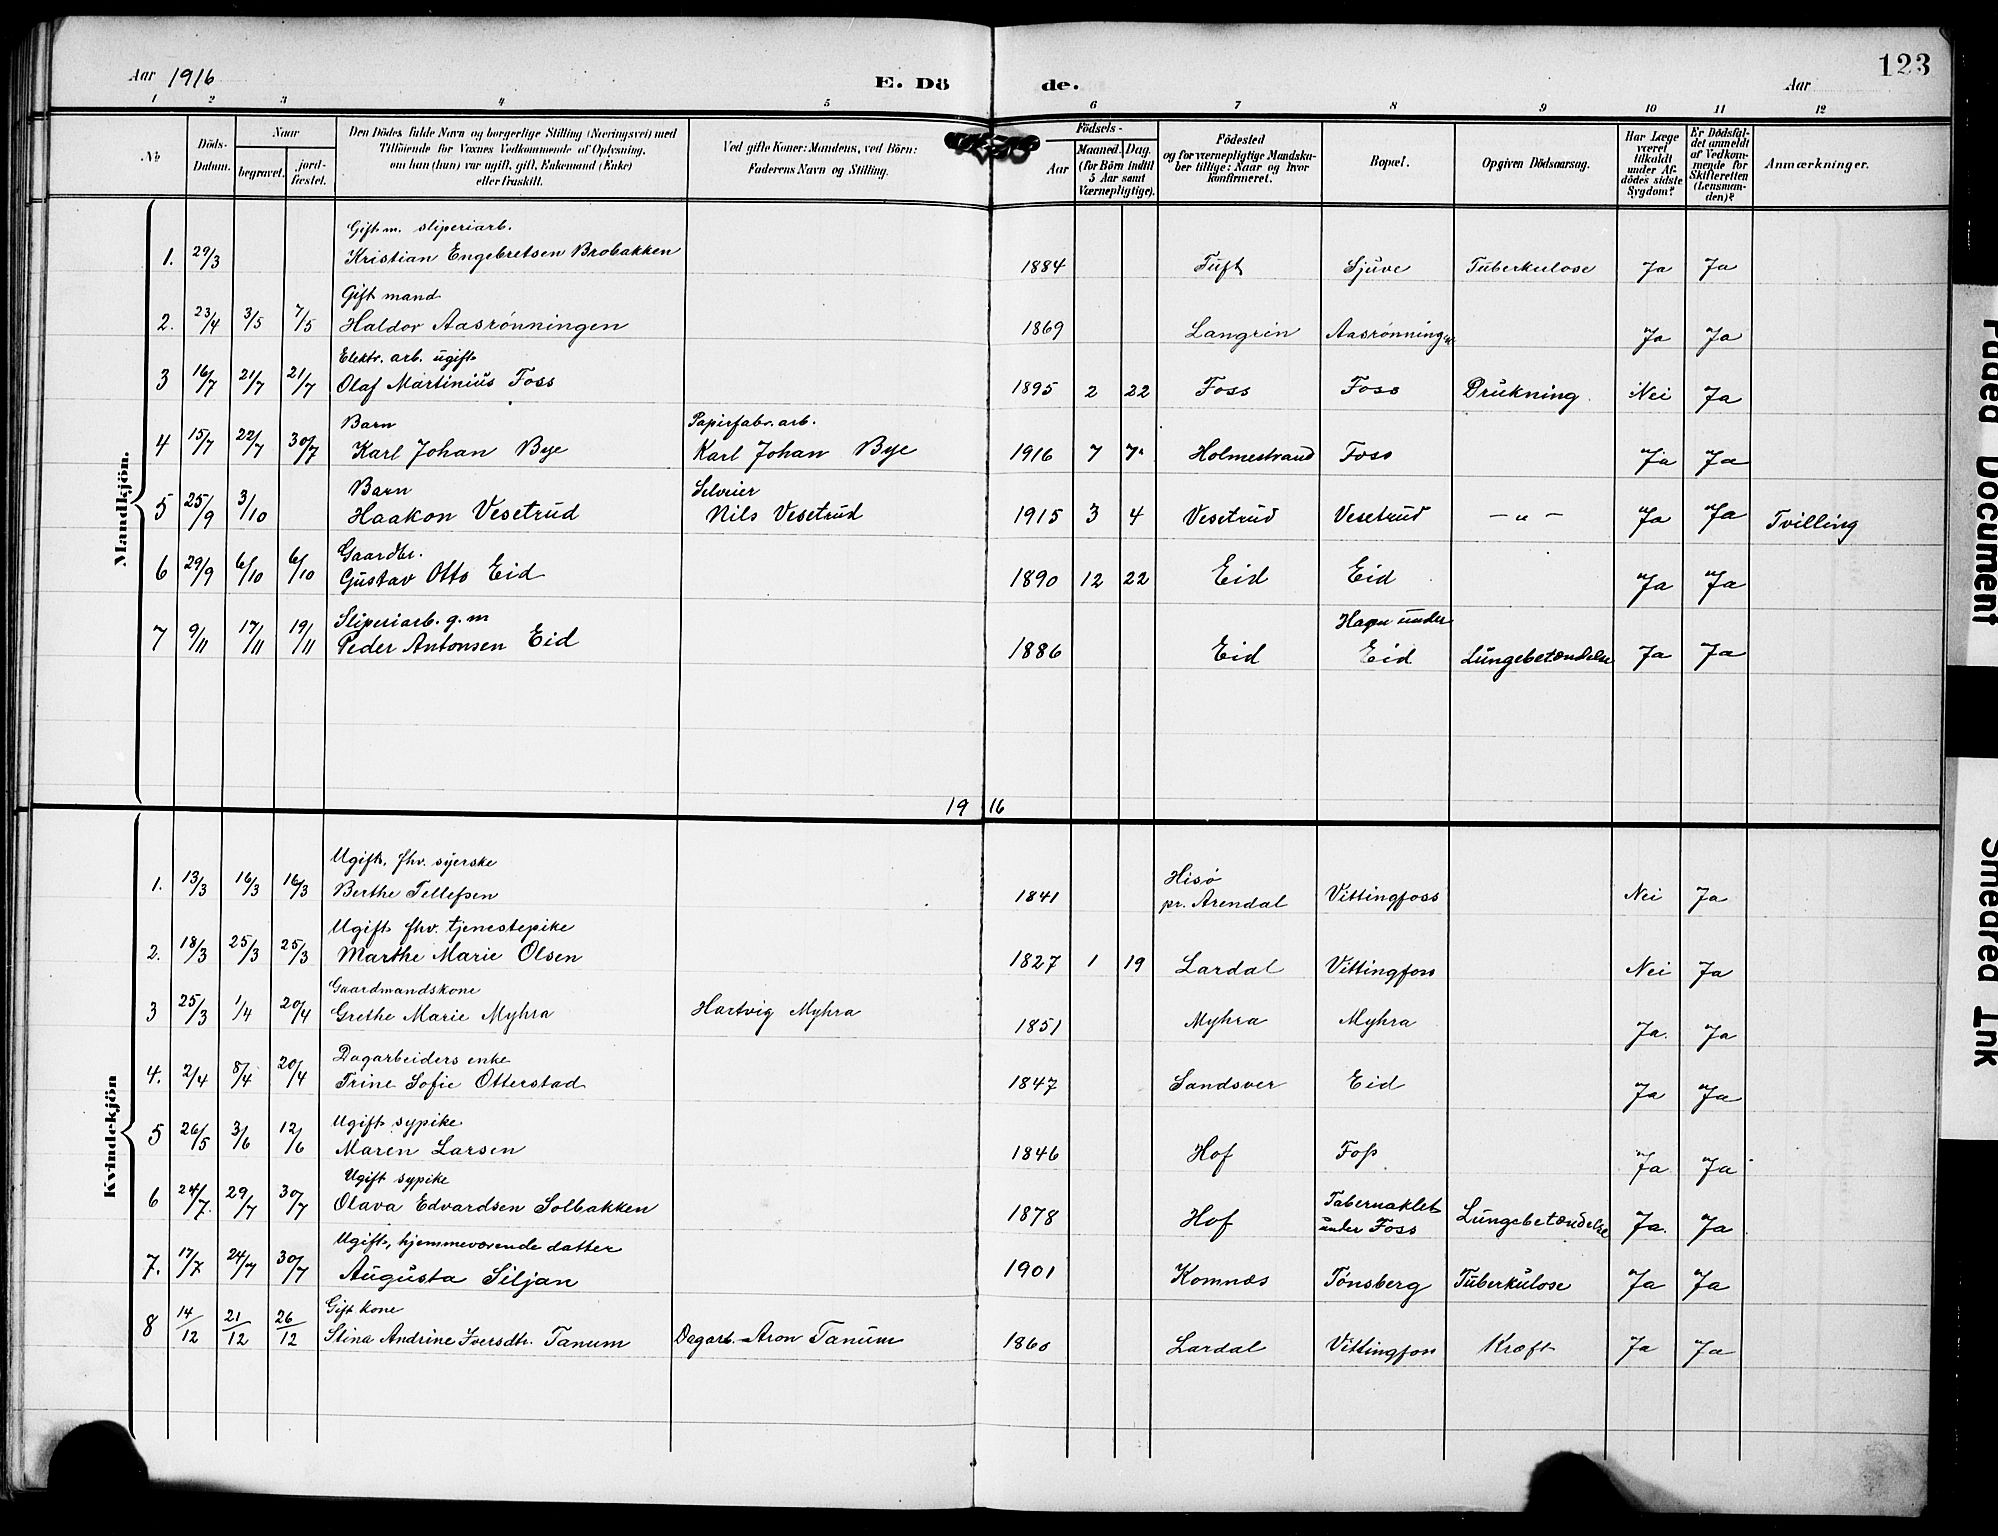 Aar 1916
E. Dö de.
Aar
123
1 2 3 4 5 6 7 8 9 10 11 12
No.
Döds-Datum.
Naar
begravet.
jord-fæstet.
Den Dödes fulde Navn og borgerlige Stilling (Næringsvei) med
Tilföiende for Voxnes Vedkommende af Oplysning,
om han (hun) var ugift, gift, Enkemand (Enke)
eller fraskilt.
Ved gifte Koner: Mandens, ved Börn:
Faderens Navn og Stilling.
Födsels-
Aar
Maaned. Dag.
(for Börn indtil
5 Aar samt
Værnepligtige).
Födested
og for værnepligtige Mandska-
ber tillige: Naar og hvor
konfirmeret.
Bopæl.
Opgiven Dödsaarsag.
Har Læge
været
tilkaldt
under Af-
dödes sidste
Sygdom?
Er Dødsfal-
det anmeldt
af Vedkom-
mende for
Skifteretten
(Lensman-
den)?
Anmærkninger.
Mandkjön.
Gift m. sliperiarb.
1. 29/3 Kristian Engebretsen Brobakken 1884 Tuft Sjuve Tuberkulose Ja Ja
Gift mand
2. 23/4 3/5 7/5 Haldor Aasrönningen 1869 Langrin Aasrönningen Ja Ja
Elektr. arb. ugift
3 16/7 21/7 21/7 Olaf Martinius Foss 1895 2 22 Foss Foss Drukning Nei Ja
Barn Papirfabr. arb.
4 15/7 22/7 30/7 Karl Johan Bye Karl Johan Bye 1916 7 7 Holmestrand Foss Ja Ja
Barn Selveier
5 25/9 3/10 Haakon Vesetrud Nils Vesetrud 1915 3 4 Vesetrud Vesetrud — " — Ja Ja Tvilling
Gaardbr.
6 29/9 6/10 6/10 Gustav Otto Eid 1890 12 22 Eid Eid Ja Ja
Sliperiarb. g. m Hagen under
7 9/11 17/11 19/11 Peder Antonsen Eid 1886 Eid Eid Lungebetændelse Ja Ja
19 16
Kvindekjön
Ugift, fhv. syerske Hisö
1. 13/3 16/3 16/3 Berthe Tellefsen 1841 pr. Arendal Vittingfoss Nei Ja
Ugift fhv. tjenestepike
2. 18/3 25/3 25/3 Marthe Marie Olsen 1827 1 19 Lardal Vittingfoss Nei Ja
Gaardmandskone
3 25/3 1/4 20/4 Grethe Marie Myhra Hartvig Myhra 1851 Myhra Myhra Ja. Ja
Dagarbeiders enke
4. 2/4 8/4 20/4 Trine Sofie Otterstad 1847 Sandsver Eid Ja Ja
Ugift sypike
5 26/5 3/6 12/6 Maren Larsen 1846 Hof Foss Ja Ja
Ugift sypike Tabernaklet
6 24/7. 29/7 30/7 Olava Edvardsen Solbakken 1878 Hof under Foss Lungebetændelse Ja. Ja
Ugift, hjemmeværende datter
7. 17/7 24/7 30/7 Augusta Siljan 1901 Komnæs Tönsberg Tuberkulose Ja Ja
Gift kone
8 14/12 21/12 26/12 Stina Andrine Iversdtr. Tanum Dagarb. Aron Tanum 1860 Lardal Vittingfoss Kræft Ja Ja
Faded Document
Smeared Ink